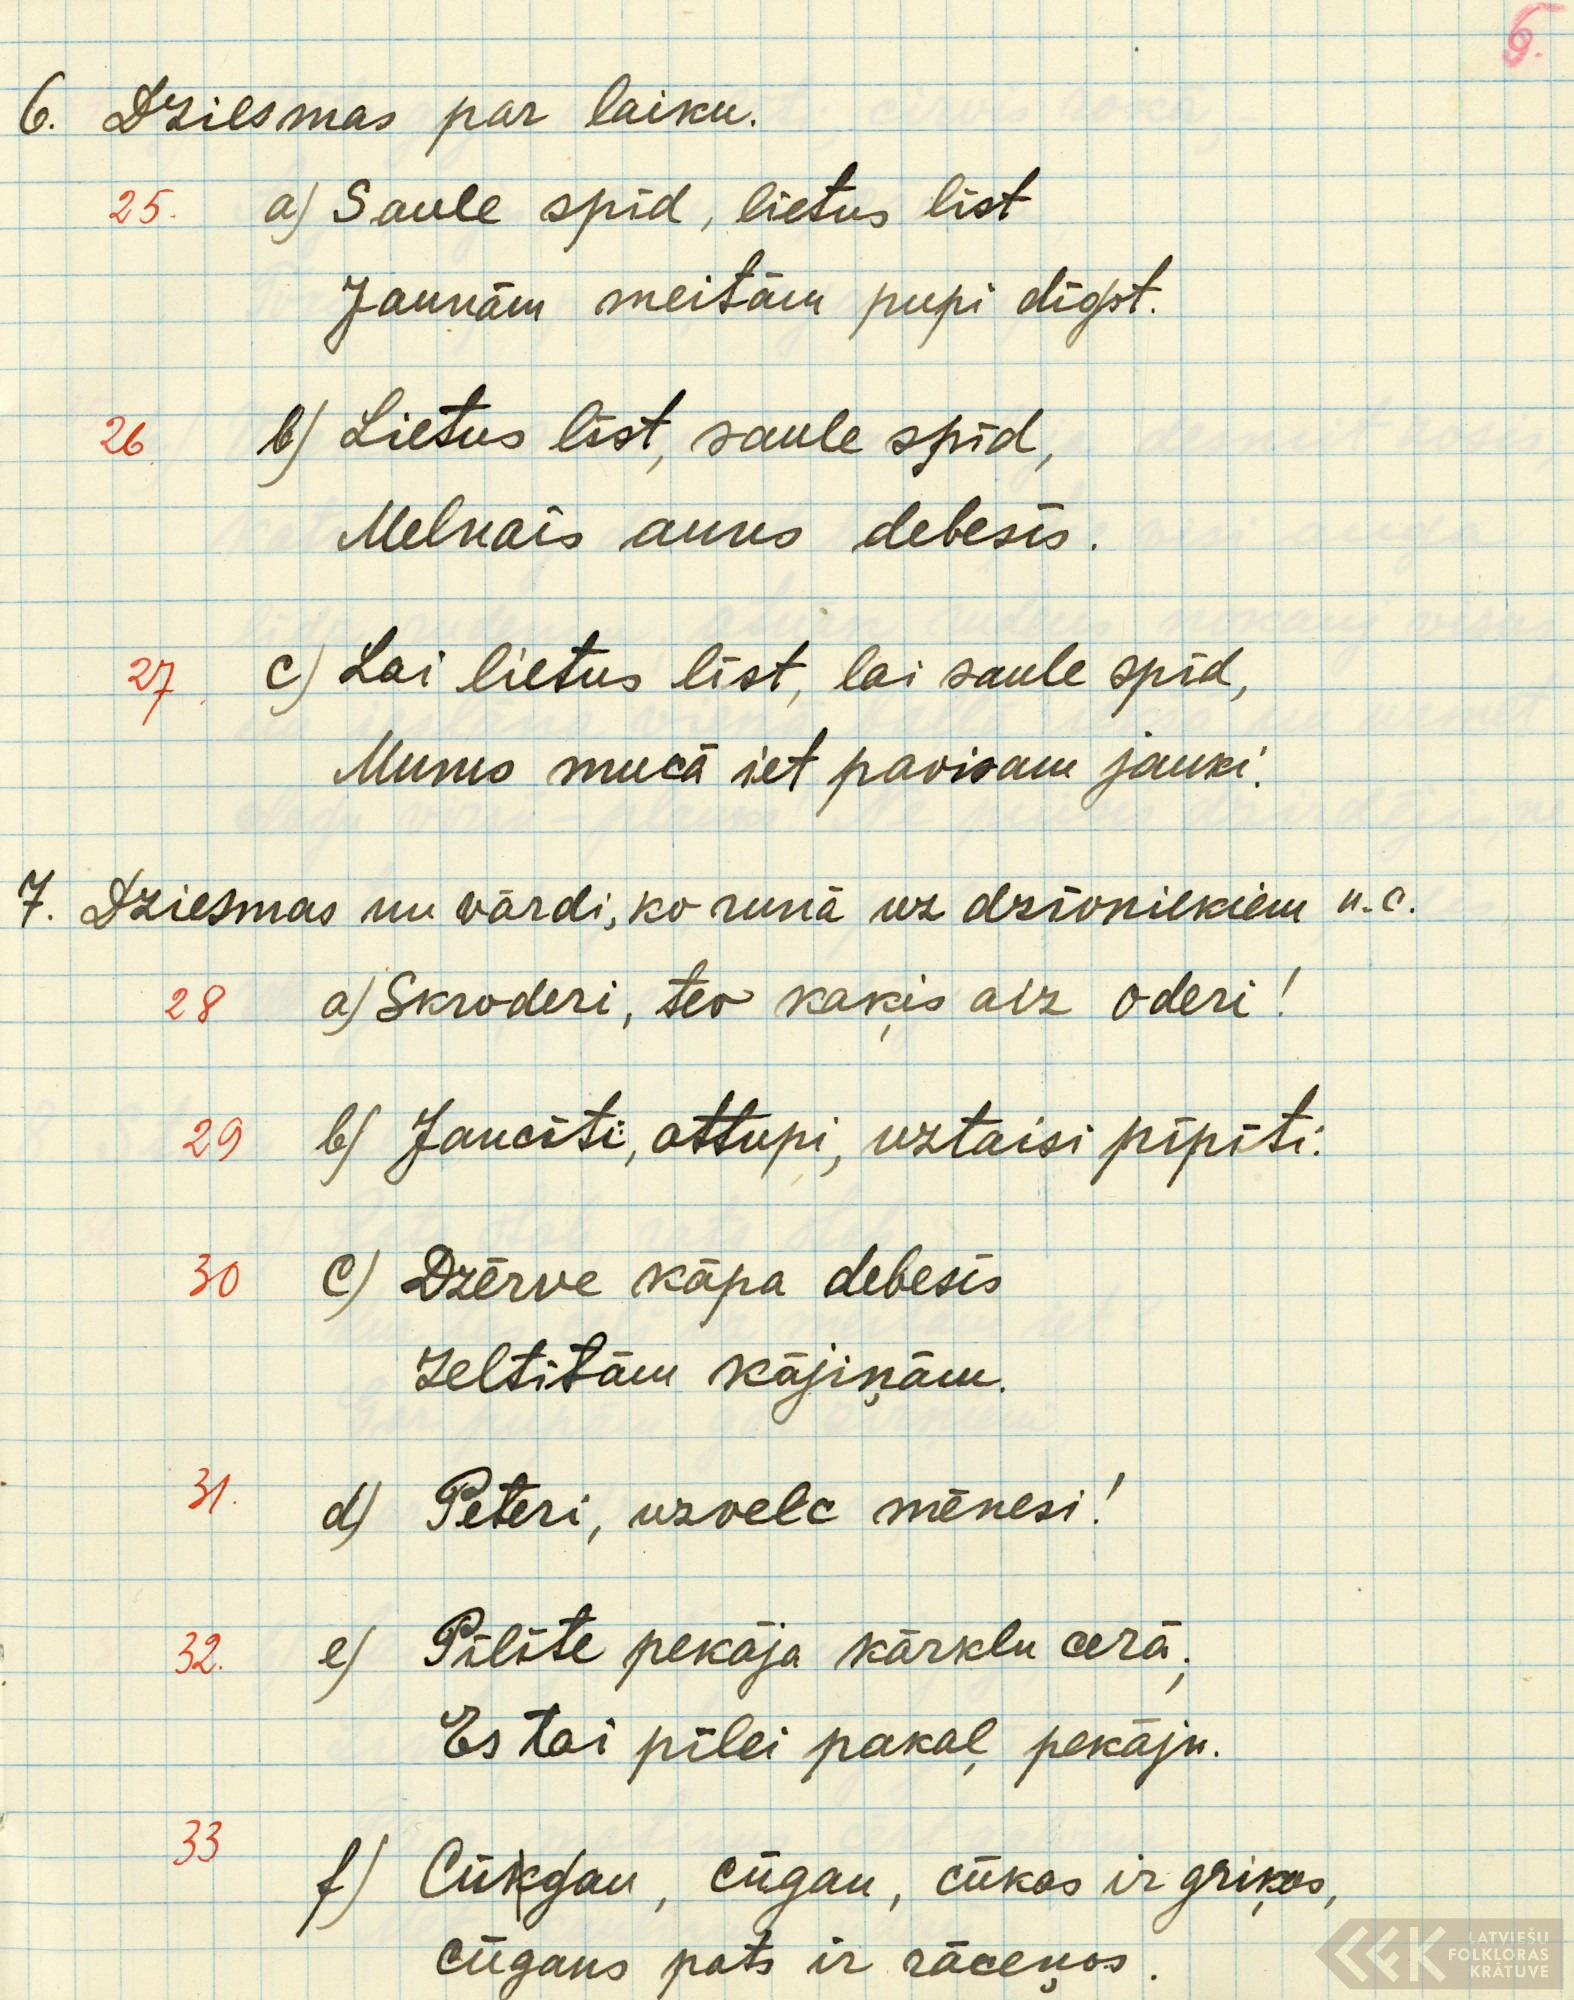 6.
6. Dziesmas par laiku.
25. a) Saule spīd, lietus līst
Jaunām meitām pupi dīgst.
26. b) Lietus līst, saule spīd,
Melnais auns debesīs.
27. c) Lai lietus līst, lai saule spīd,
Mums mucā iet pavisam jauki.
7. Dziesmas un vārdi, ko runā uz dzīvniekiem u.c.
28 a) Skroderi, tev kaķis aiz oderi!
29 b) Jancīti, attupi, uztaisi pīpīti.
30 c) Dzērve kāpa debesīs
Zeltītām kājiņām.
31. d) Pēteri, uzvelc mēnesi!
32. e) Pīlīte pekāja kārklu cerā,
Es tai pīlei pakaļ pekāju.
33 f) Cūkgan, cūgan, cūkas ir griķos,
cūgans pats ir rāceņos.
LATVIEŠU
FOLKLORAS
KRĀTUVE